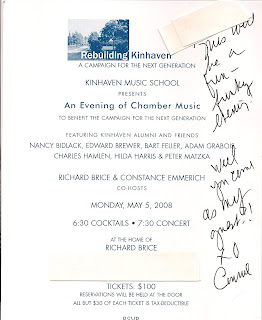 Rebuilding Kinhaven
A CAMPAIGN FOR THE NEXT GENERATION
KINHAVEN MUSIC SCHOOL
PRESENTS
An Evening of Chamber Music
TO BENEFIT THE CAMPAIGN FOR THE NEXT GENERATION
FEATURING KINHAVEN ALUMNI AND FRIENDS
NANCY BIDLACK, EDWARD BREWER, BART FELLER, ADAM GRABOIS,
CHARLES HAMLEN, HILDA HARRIS & PETER MATZKA
RICHARD BRICE & CONSTANCE EMMERICH
CO-HOSTS
MONDAY, MAY 5, 2008
6:30 COCKTAILS • 7:30 CONCERT
AT THE HOME OF
RICHARD BRICE
TICKETS: $100
RESERVATIONS WILL BE HELD AT THE DOOR
ALL BUT $30 OF EACH TICKET IS TAX-DEDUCTIBLE
RSVP
This will
be a
fun
funky
evening!
Will
you come
as my
guest?
XO
Connie